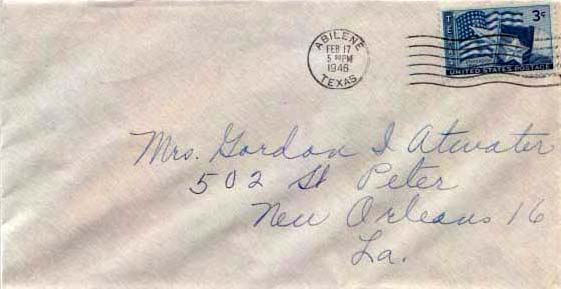 ABILENE
FEB 17
5 PM
1946
TEXAS
3¢
UNITED STATES POSTAGE
Mrs. Gordon I Atwater
502 St Peter
New Orleans 16
La.